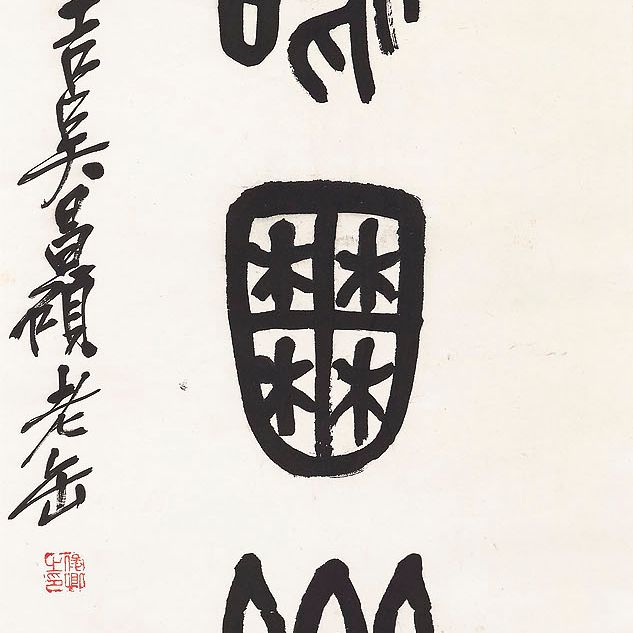 囿
吉吳昌碩老缶
俊卿
之印